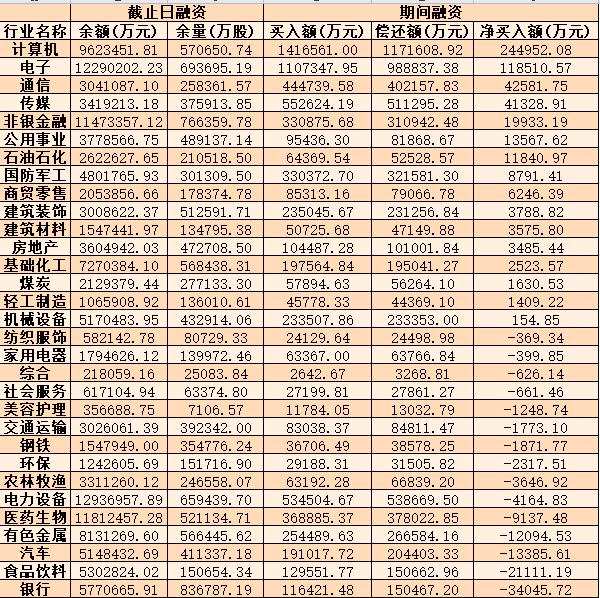 截止日融资 期间融资
行业名称 余额(万元) 余量(万股) 买入额(万元) 偿还额(万元) 净买入额(万元)
计算机 9623451.81 570650.74 1416561.00 1171608.92 244952.08
电子 12290202.23 693695.19 1107347.95 988837.38 118510.57
通信 3041087.10 258361.57 444739.58 402157.83 42581.75
传媒 3419213.18 375913.85 552624.19 511295.28 41328.91
非银金融 11473357.12 766359.78 330875.68 310942.48 19933.19
公用事业 3778566.75 489137.14 95436.30 81868.67 13567.62
石油石化 2622627.65 210518.50 64369.54 52528.57 11840.97
国防军工 4801765.93 301309.50 330372.70 321581.30 8791.41
商贸零售 2053856.66 178374.78 85313.16 79066.78 6246.39
建筑装饰 3008622.37 512591.71 235045.67 231256.84 3788.82
建筑材料 1547441.97 134795.38 50725.68 47149.88 3575.80
房地产 3604942.03 472708.50 104487.28 101001.84 3485.44
基础化工 7270384.10 568438.31 197564.84 195041.27 2523.57
煤炭 2129379.44 277133.30 57894.63 56264.10 1630.53
轻工制造 1065908.92 136010.61 45778.33 44369.10 1409.22
机械设备 5170483.95 432914.06 233507.86 233353.00 154.85
纺织服饰 582142.78 80729.33 24129.64 24498.98 -369.34
家用电器 1794626.12 139972.46 63367.00 63766.84 -399.85
综合 218059.16 25083.84 2642.67 3268.81 -626.14
社会服务 617104.94 63374.80 27199.81 27861.27 -661.46
美容护理 356688.75 7106.57 11784.05 13032.79 -1248.74
交通运输 3026061.39 392342.00 83038.37 84811.47 -1773.10
钢铁 1547949.00 354776.24 36706.49 38578.25 -1871.77
环保 1242605.69 151716.90 29188.31 31505.82 -2317.51
农林牧渔 3311260.12 246558.07 63192.28 66839.20 -3646.92
电力设备 12936957.89 659439.70 534504.67 538669.50 -4164.83
医药生物 11812457.28 521134.71 368885.37 378022.85 -9137.48
有色金属 8131269.60 566445.62 254489.63 266584.16 -12094.53
汽车 5148432.69 411337.18 191017.72 204403.33 -13385.61
食品饮料 5302824.02 150654.34 129551.77 150662.96 -21111.19
银行 5770665.91 836787.19 116421.48 150467.20 -34045.72